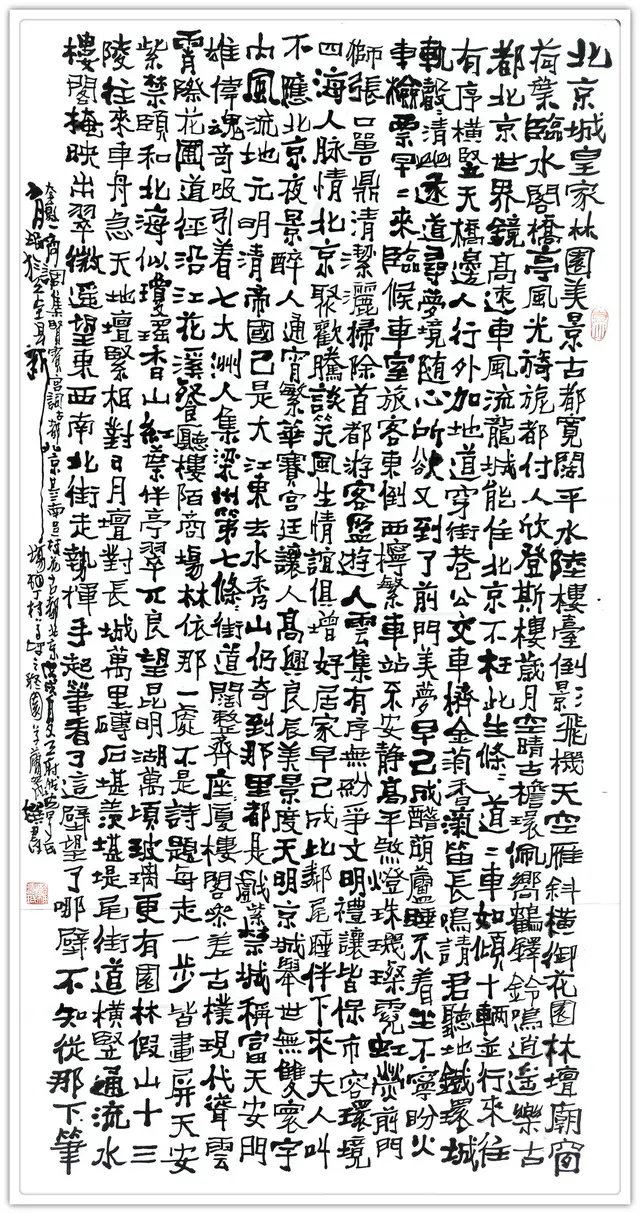 北京城皇家林園美景古都寬闊平水陸樓臺倒影飛機天空雁斜橫御花園林壇廟窗
荷葉臨水閣橋亭風光旖旎都付人欣登斯樓歲月空晴古檐環佩響鶴鐸鈴鳴逍遥樂古
都北京世界鏡高速車風流龍城能住北京不枉此生條二道二車如傾十輛並行來往
有序橫竪天橋邊人行外加地道穿街巷公交車擠金菊香瀰笛長鳴請君聽地鐵環城
軌轂清幽遂道尋夢境随心所欲又到了前門美夢早已成醋葫蘆睡不着坐不寧盼火
車檢票早二來臨候車室旅客東倒西檸繁車站不安静高平煞燈珠璣璨霓虹熒前門
獅張口罢鼎清潔灑掃除首都游客盈遊人雲集有序無紛爭文明禮讓皆保市容環境
四海人脉情北京聚歡騰談笑風生情誼俱增好居家早已成比鄰尾睡伴下來夫人叫
不應北京夜景醉人通宵繁華賽宫廷讓人高興良辰美景度天明京城舉世無雙寰宇
内風流地元明清帝國已是大江東去水秀山仍奇到那里都是戲紫禁城稱富天安門
雄偉魂奇吸引着七大洲人集梁州第七條街道闊整齊座廈樓閣參差古樸現代聳雲
霄際花圃道徑沿江花溪餐聽樓陌商場林依那一處不是詩題每走一步皆畫屏天安
紫禁頤和北海似瓊瑶香山紅葉伴亭翠兀良望昆明湖萬頃玻璃更有園林假山十三
陵往來車舟急天地壇緊相對日月壇對長城萬里磚石堪羡堪堤尾街道橫竪通流水
樓閣掩映出翠微遥望東西南北街走執揮手起筆看了這壁望了哪壁不知從那下筆